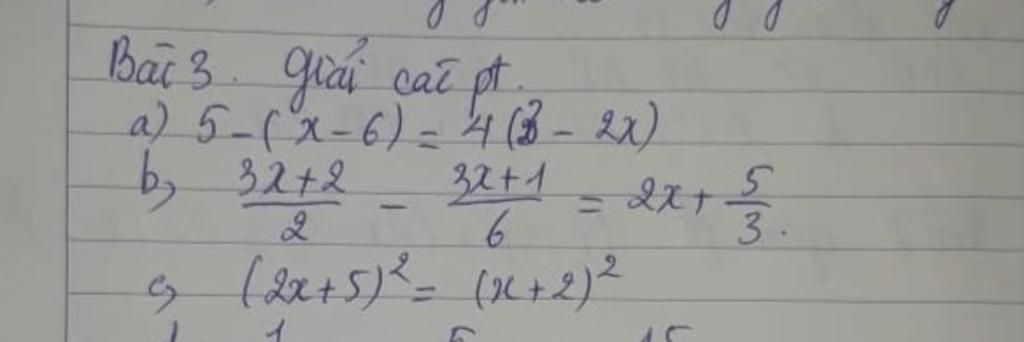 Bài 3. Giải các pt.
a) 5 - (x - 6) = 4(3 - 2x)
b, \frac{3x+2}{2} - \frac{3x+1}{6} = 2x + \frac{5}{3}.
c, (2x+5)^2 = (x+2)^2